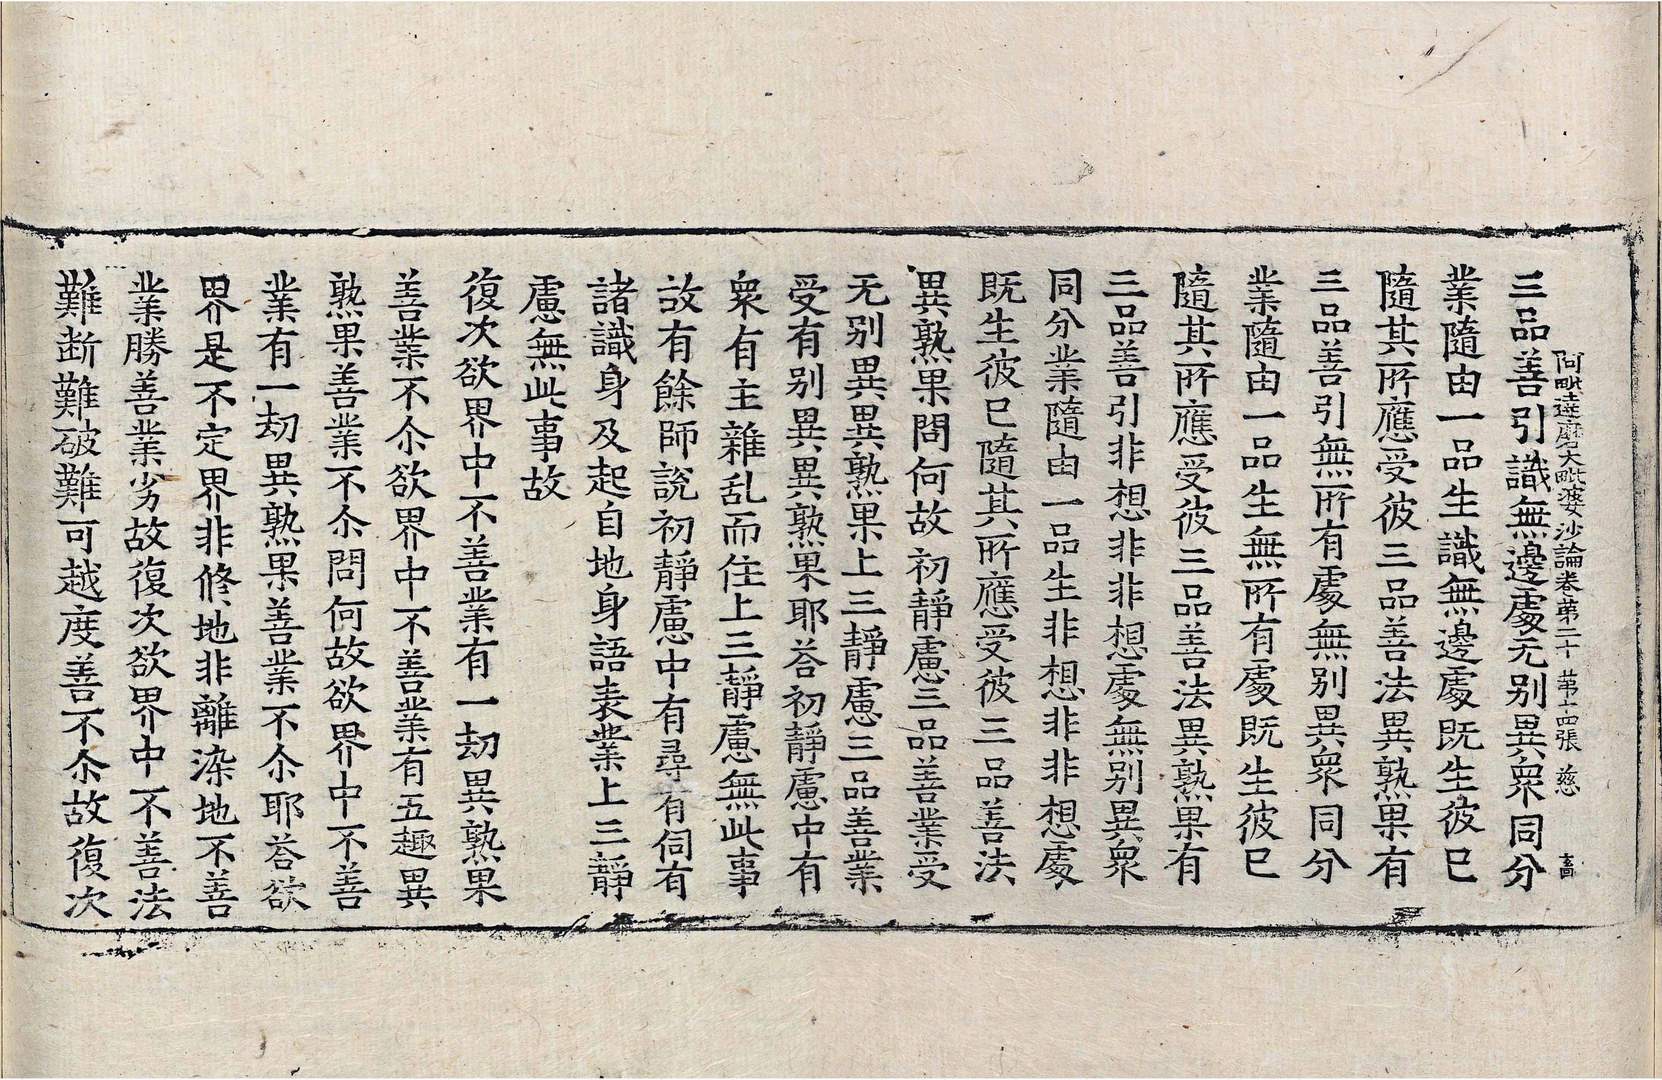 阿毗達磨大毗婆沙論卷第二十　第十四張　慈
三品善引識無邊處无别異衆同分
業隨由一品生識無邊處既生彼已
隨其所應受彼三品善法異熟果有
三品善引無所有處無别異衆同分
業隨由一品生無所有處既生彼已
隨其所應受彼三品善法異熟果有
三品善引非想非非想處無别異衆
同分業隨由一品生非想非非想處
既生彼已隨其所應受彼三品善法
異熟果問何故初靜慮三品善業受
无别異異熟果上三靜慮三品善業
受有别異異熟果耶荅初靜慮中有
衆有主雜乱而住上三靜慮無此事
故有餘師說初靜慮中有尋有伺有
諸識身及起自地身語表業上三靜
慮無此事故
復次欲界中不善業有一劫異熟果
善業不尒欲界中不善業有五趣異
熟果善業不尒問何故欲界中不善
業有一劫異熟果善業不尒耶荅欲
界是不定界非修地非離染地不善
業勝善業劣故復次欲界中不善法
難断難破難可越度善不尒故復次